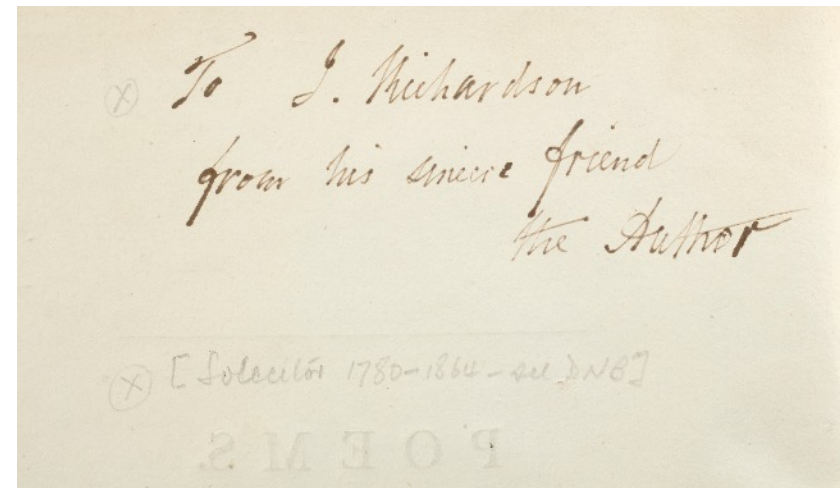 To J. Richardson
from his sincere friend
the Author
[Solicitor 1780-1864 - see DNB]
POEMS.